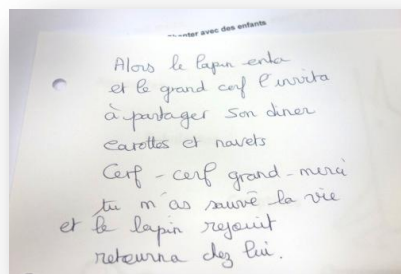 chanter avec des enfants
Alors le lapin entra
et le grand cerf l'invita
à partager son dîner
carottes et navets
Cerf - cerf grand - merci
tu m'as sauvé la vie
et le lapin rejouit
retourna chez lui.